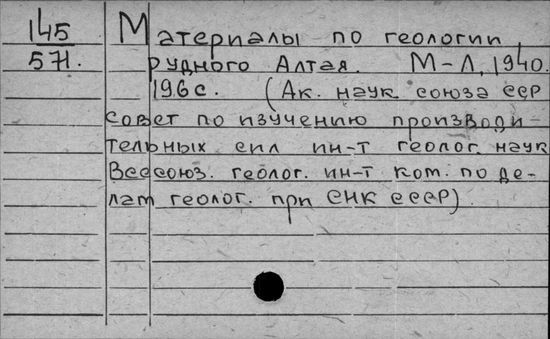 145
571.
Материалы по геологии
рудного Алтая. М-Л, 1940.
196 с. (Ак. наук союза ССР
совет по изучению производи-
тельных сил ин-т геолог. наук
Всесоюз. геолог. ин-т ком. по де-
лам геолог. при СНК СССР)